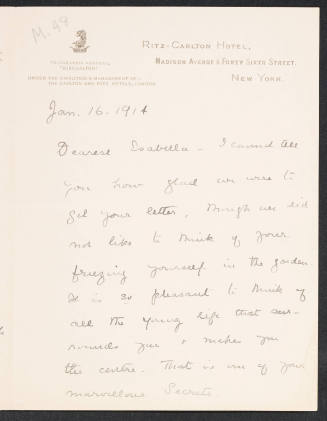 M. 49
Ritz-Carlton Hotel,
Madison Avenue & Forty Sixth Street.
New York.
Telegraphic Address,
"Ritzcarlton"
Under the Carlton's Management of
The Carlton and Ritz Hotels, London
Jan. 16. 1914
Dearest Isabella - I cannot tell
you how glad we were to
get your letter, though we did
not like to think of your
freezing yourself in the garden
It is so pleasant to think of
all the young life that sur-
rounds you & makes you
the centre. That is one of your
marvellous secrets.